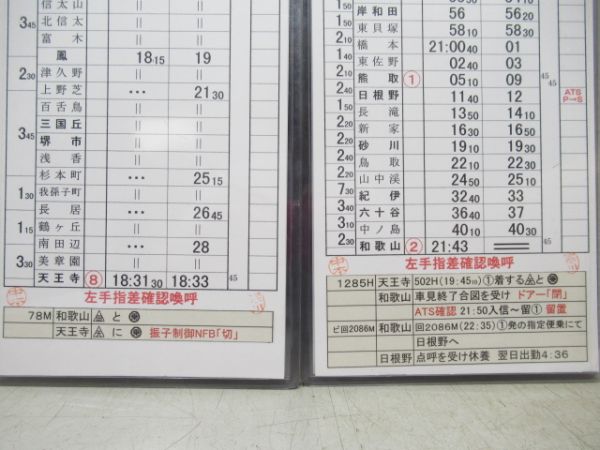 信太山 ||
3 45 北信太 || ||
富木 || ||
鳳 18 15 19
2 30 津久野 || ||
上野芝 ・・・ 21 30
百舌鳥 || ||
三国丘 || ||
3 45 堺市 || ||
浅香 || ||
杉本町 ・・・ 25 15
1 30 我孫子町 || ||
長居 ・・・ 26 45
1 15 鶴ヶ丘 || ||
南田辺 ・・・ 28
3 30 美章園 || ||
天王寺 ⑧ 18:31 30 18:33 45
左手指差確認喚呼
78M 和歌山 と
天王寺 に 振子制御NFB「切」
岸和田 56 56 20
東貝塚 58 10 58 30
橋本 21:00 40 01
東佐野 02 40 03
熊取 ① 05 10 09 45 45
日根野 11 40 12 ATS P→S
長滝 13 50 14 10
新家 16 30 16 50
砂川 19 10 19 30
鳥取 22 10 22 30
山中渓 24 50 25 10
紀伊 32 40 33
六十谷 36 40 37
中ノ島 40 10 40 30
和歌山 ② 21:43 45
左手指差確認喚呼
1285H 天王寺 502H(19:45 10)①着する と
和歌山 車見終了合図を受け ドアー「閉」
ATS確認 21:50入信~留① 留置
ビ回2086M 和歌山 回2086M(22:35)①発の指定便乗にて
日根野へ
日根野 点呼を受け休養 翌日出勤4:36